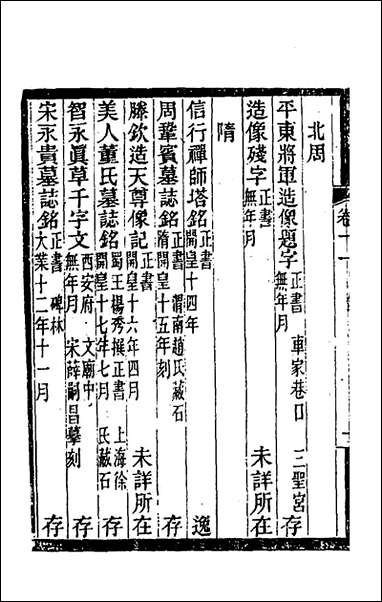 北周
平東將軍造像題字 正書 無年月 車家巷口 三聖宮 存
造像殘字 正書 無年月 未詳所在
隋
信行禪師塔銘 正書 開皇十四年 逸
周鞏賓墓誌銘 正書 隋開皇十五年刻 渭南趙氏藏石 存
滕欽造天尊像記 正書 開皇十六年四月 未詳所在
美人董氏墓誌銘 蜀王楊秀撰正書 開皇十七年七月 上海徐氏藏石 存
智永眞草千字文 西安府文廟中 無年月 宋薛嗣昌摹刻 存
宋永貴墓誌銘 正書 碑林 大業十二年十一月 存
卷十一